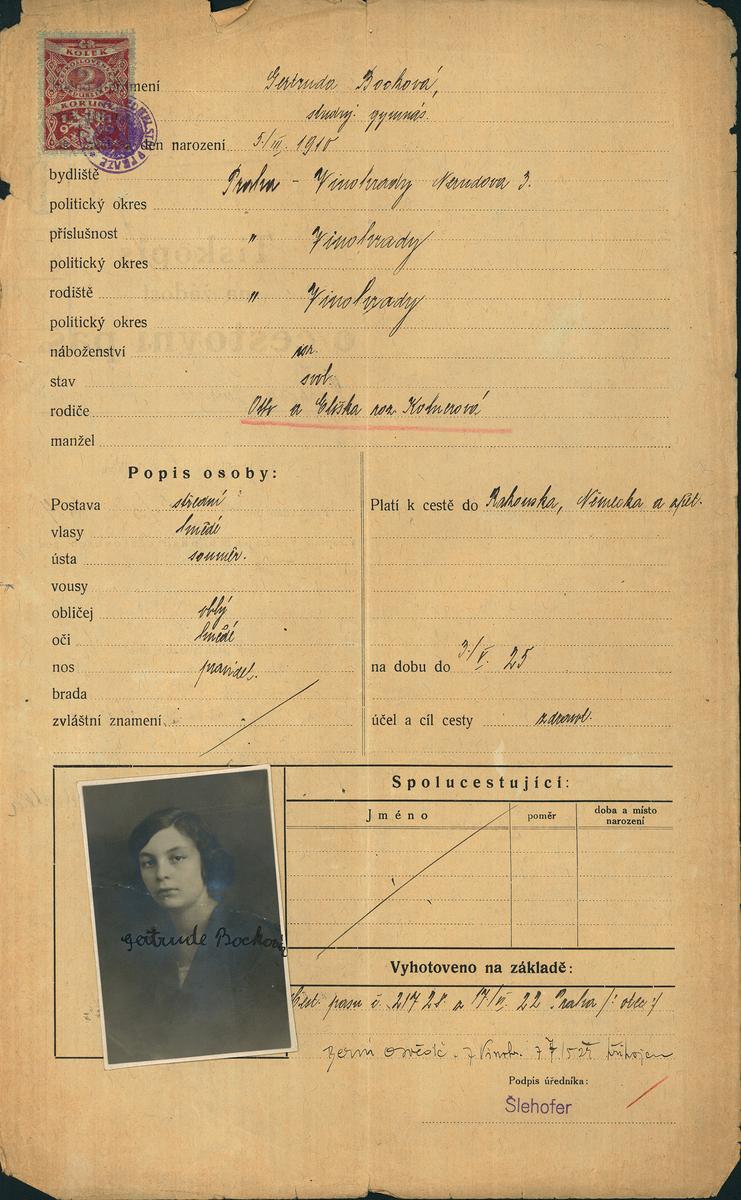 ČR
KOLEK
2
KORUNY
PRAZE
Gertruda Bocková,
gymnas.
den narození 5./III. 1910
bydliště Praha - Vinohrady Nerudova 3.
politický okres
příslušnost " Vinohrady
politický okres
rodiště " Vinohrady
politický okres
náboženství isr.
stav svob.
rodiče Otto a Eliška roz. Kohnerová
manžel
Popis osoby:
Postava střední
vlasy hnědé
ústa souměr.
vousy
obličej oblý
oči hnědé
nos pravidel.
brada
zvláštní znamení
Platí k cestě do Rakouska, Německa a zpět.
na dobu do 3./V. 25
účel a cíl cesty zdravot.
Spolucestující:
Jméno poměr doba a místo narození
Gertrude Bocková
Vyhotoveno na základě:
Cest. pasu č. 21728 z 17/VI. 22 Praha /: obec :/
Podpis úředníka:
Šlehofer